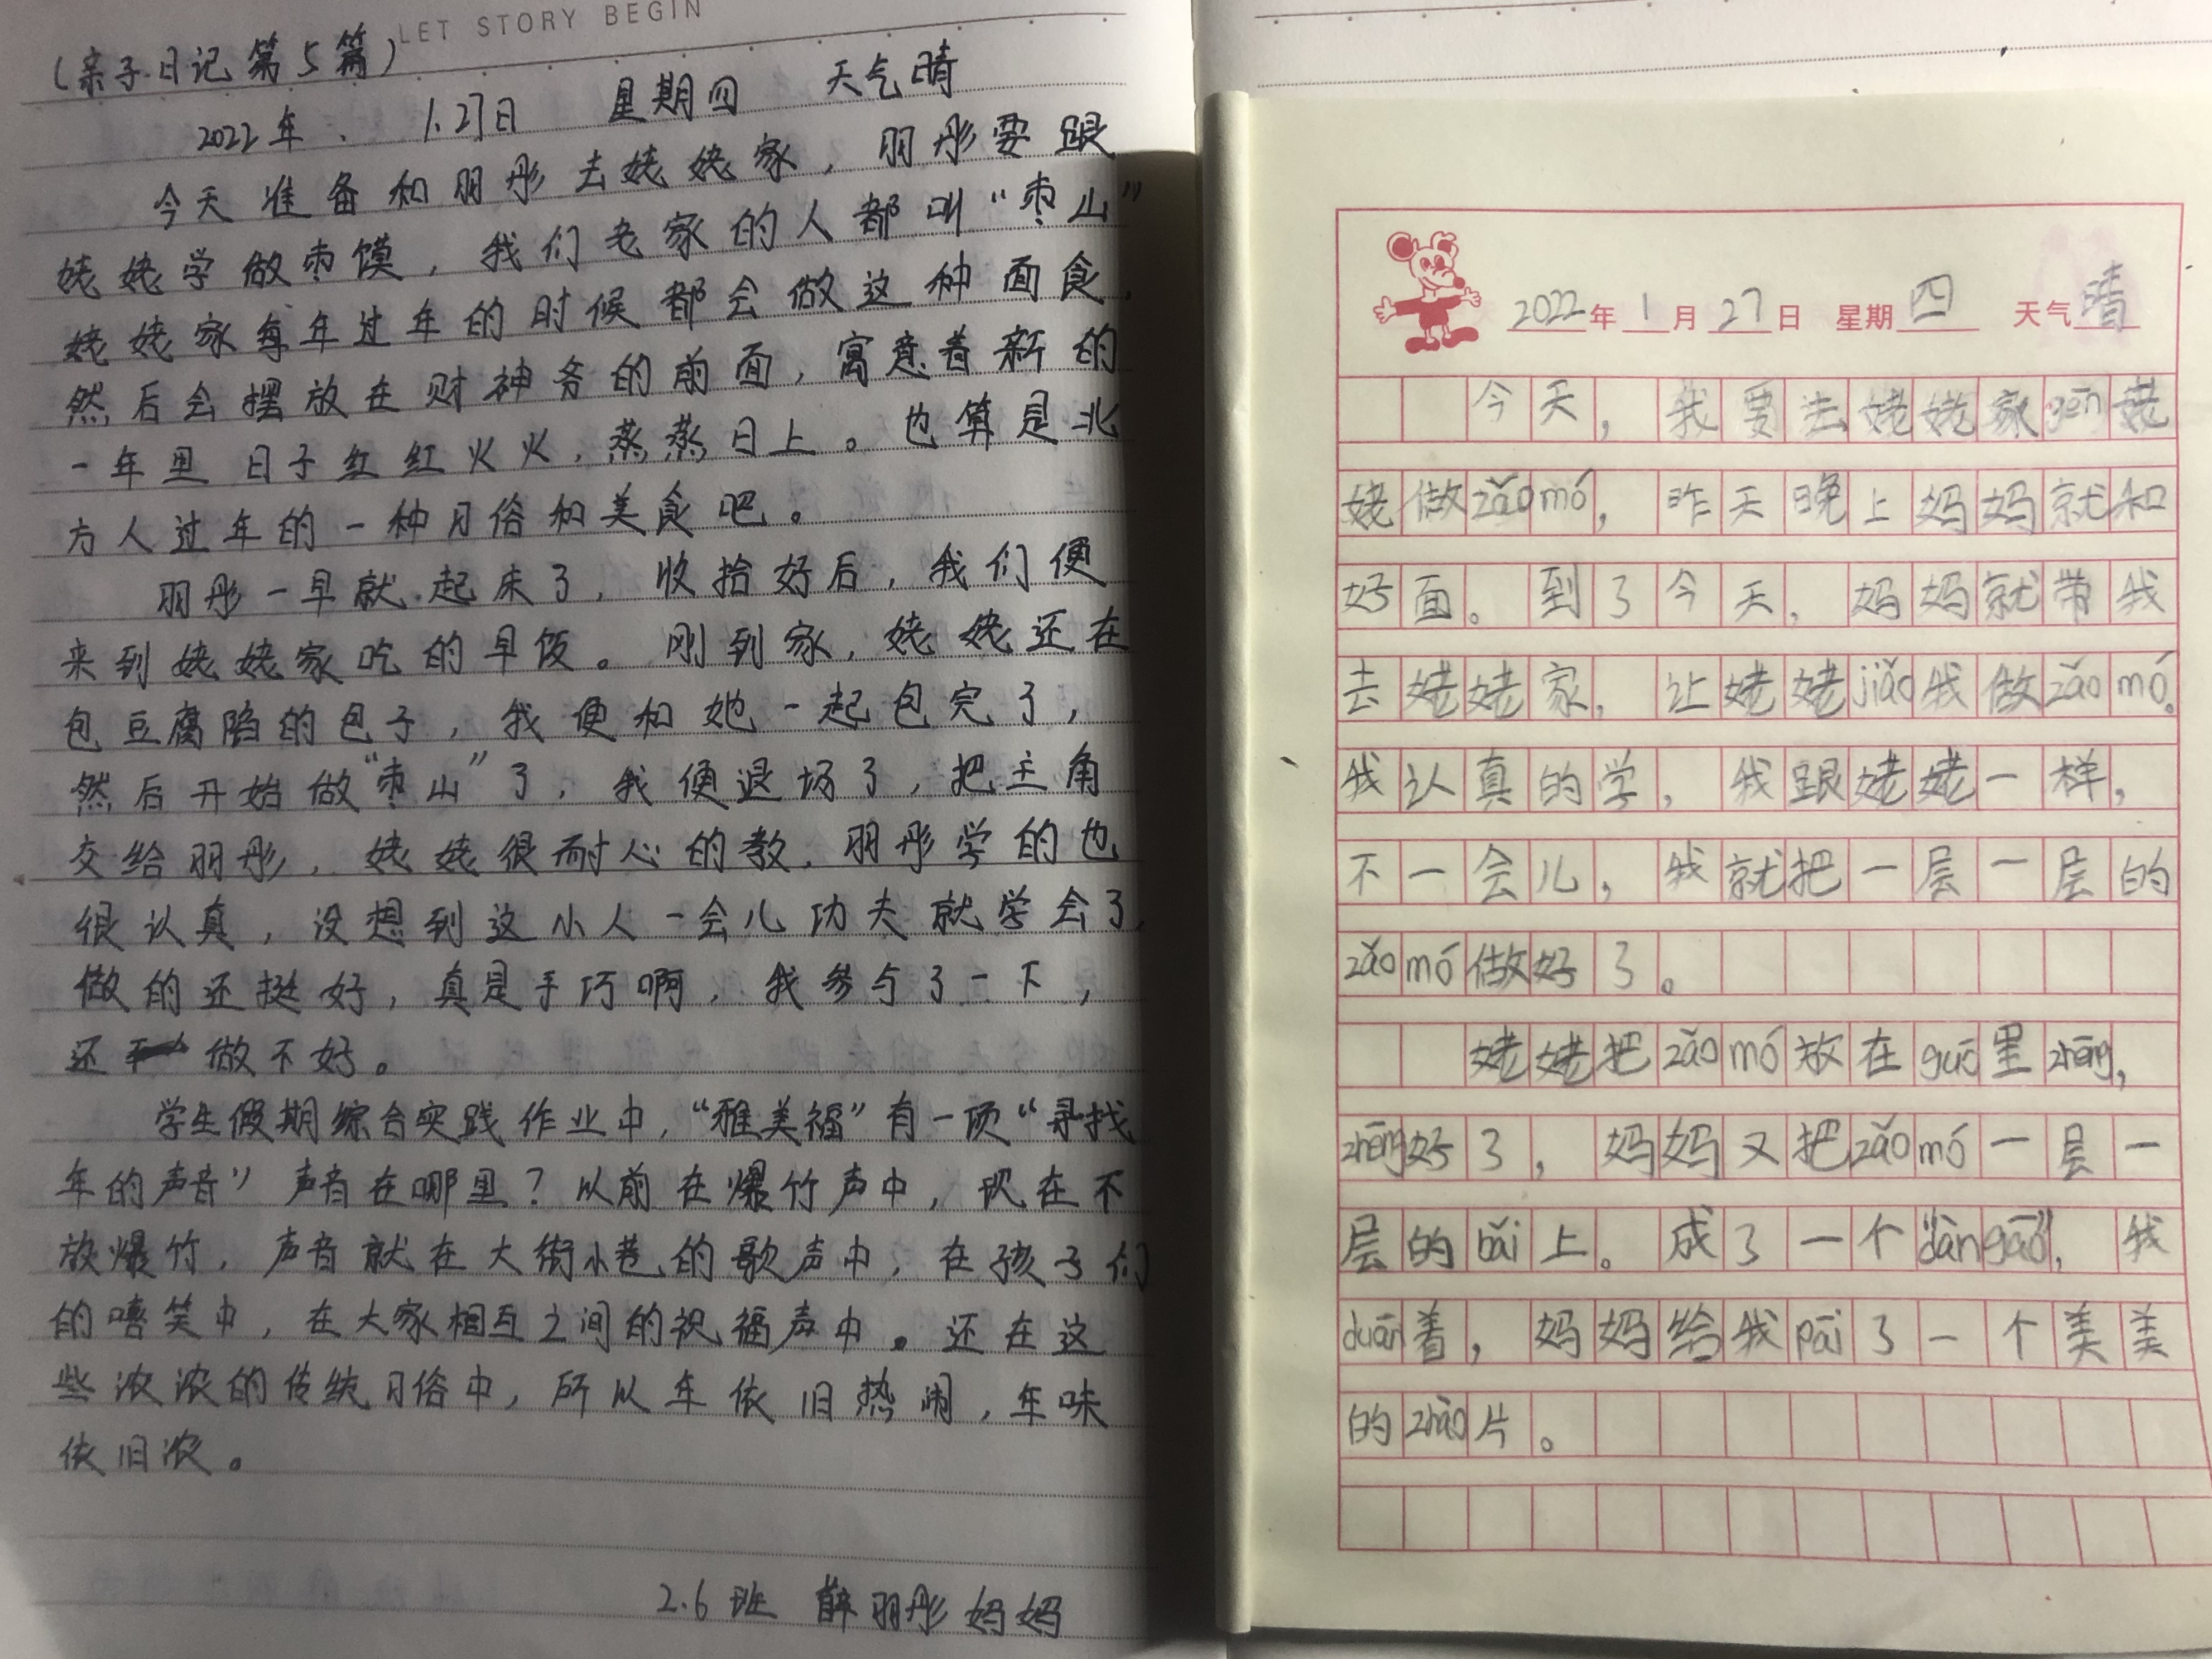 LET STORY BEGIN
（亲子日记第5篇）
2022年. 1.27日 星期四 天气晴
今天准备和羽彤去姥姥家，羽彤要跟
姥姥学做枣馍，我们老家的人都叫“枣山”
姥姥家每年过年的时候都会做这种面食，
然后会摆放在财神爷的前面，寓意着新的
一年里 日子红红火火，蒸蒸日上。也算是北
方人过年的一种习俗和美食吧。
羽彤一早就起床了，收拾好后，我们便
来到姥姥家吃的早饭。刚到家，姥姥还在
包豆腐陷的包子，我便和她一起包完了，
然后开始做“枣山”了，我便退场了，把主角
交给羽彤，姥姥很耐心的教，羽彤学的也
很认真，没想到这小人一会儿功夫就学会了，
做的还挺好，真是手巧啊，我参与了一下，
还做不好。
学生假期综合实践作业中，“雅美福”有一项“寻找
年的声音” 声音在哪里？以前在爆竹声中，现在不
放爆竹，声音就在大街小巷的歌声中，在孩子们
的嘻笑中，在大家相互之间的祝福声中。还在这
些浓浓的传统习俗中，所以年依旧热闹，年味
依旧浓。
2.6班 薛羽彤妈妈
2022年1月27日 星期四 天气晴
今天，我要去姥姥家gēn姥
姥做zǎo mó，昨天晚上妈妈就和
好面。到了今天，妈妈就带我
去姥姥家，让姥姥jiāo我做zǎo mó。
我认真的学，我跟姥姥一样，
不一会儿，我就把一层一层的
zǎo mó做好了。
姥姥把zǎo mó放在guō里zhēng，
zhēng好了，妈妈又把zǎo mó一层一
层的bǎi上。成了一个“dàn gāo”，我
duān着，妈妈给我pāi了一个美美
的zhào片。